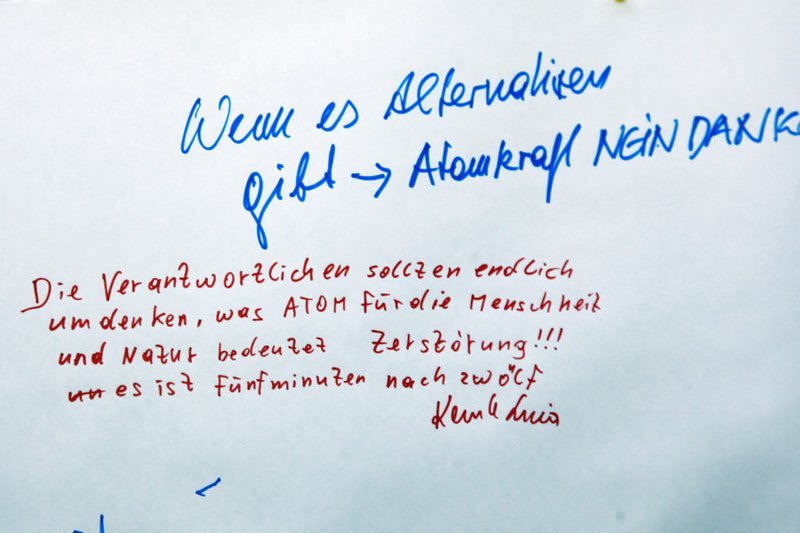 Wenn es Alternativen
gibt → Atomkraft NEIN DANK
Die Verantwortlichen sollten endlich
umdenken, was ATOM für die Menschheit
und Natur bedeutet Zerstörung!!!
es ist fünfminuten nach zwölf